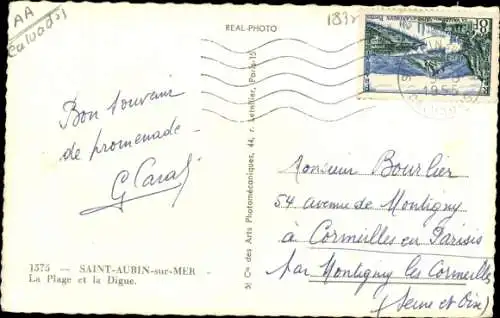 AA
Calvados
REAL-PHOTO
1955
Bon souvenir
de promenade
54 avenue de Montigny
Monsieur Bourlier
à Cormeilles en Parisis
par Montigny les Cormeilles
(Seine et Oise)
Cie des Arts Photomécaniques, 44, r. Letellier, Paris-15
1575 — SAINT-AUBIN-sur-MER -
La Plage et la Digue.